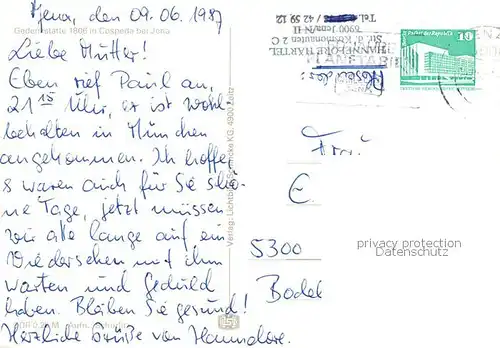 Jena, den 09.06.1987
Gedenkstätte 1806 in Cospeda bei Jena
Liebe Mutter!
Eben rief Paul an,
21 15 Uhr, er ist wohl-
behalten in München
angekommen. Ich hoffe,
s waren auch für Sie schö-
ne Tage, jetzt müssen
wir alle lange auf ein
Wiedersehen mit ihm
warten und Geduld
haben. Bleiben Sie gesund!
Herzliche Grüße von Hannelore.
Verlag: Lichtbild KG, 4900 Zeitz
HANNELORE HÄRTEL
Str. d. Kosmonauten 2 C
6900 Jena/N II
Tel. / 42 59 12
Absender:
PLANETARI
Palast der Republik
10
Frau
E
5300
Bodel
privacy protection
Datenschutz